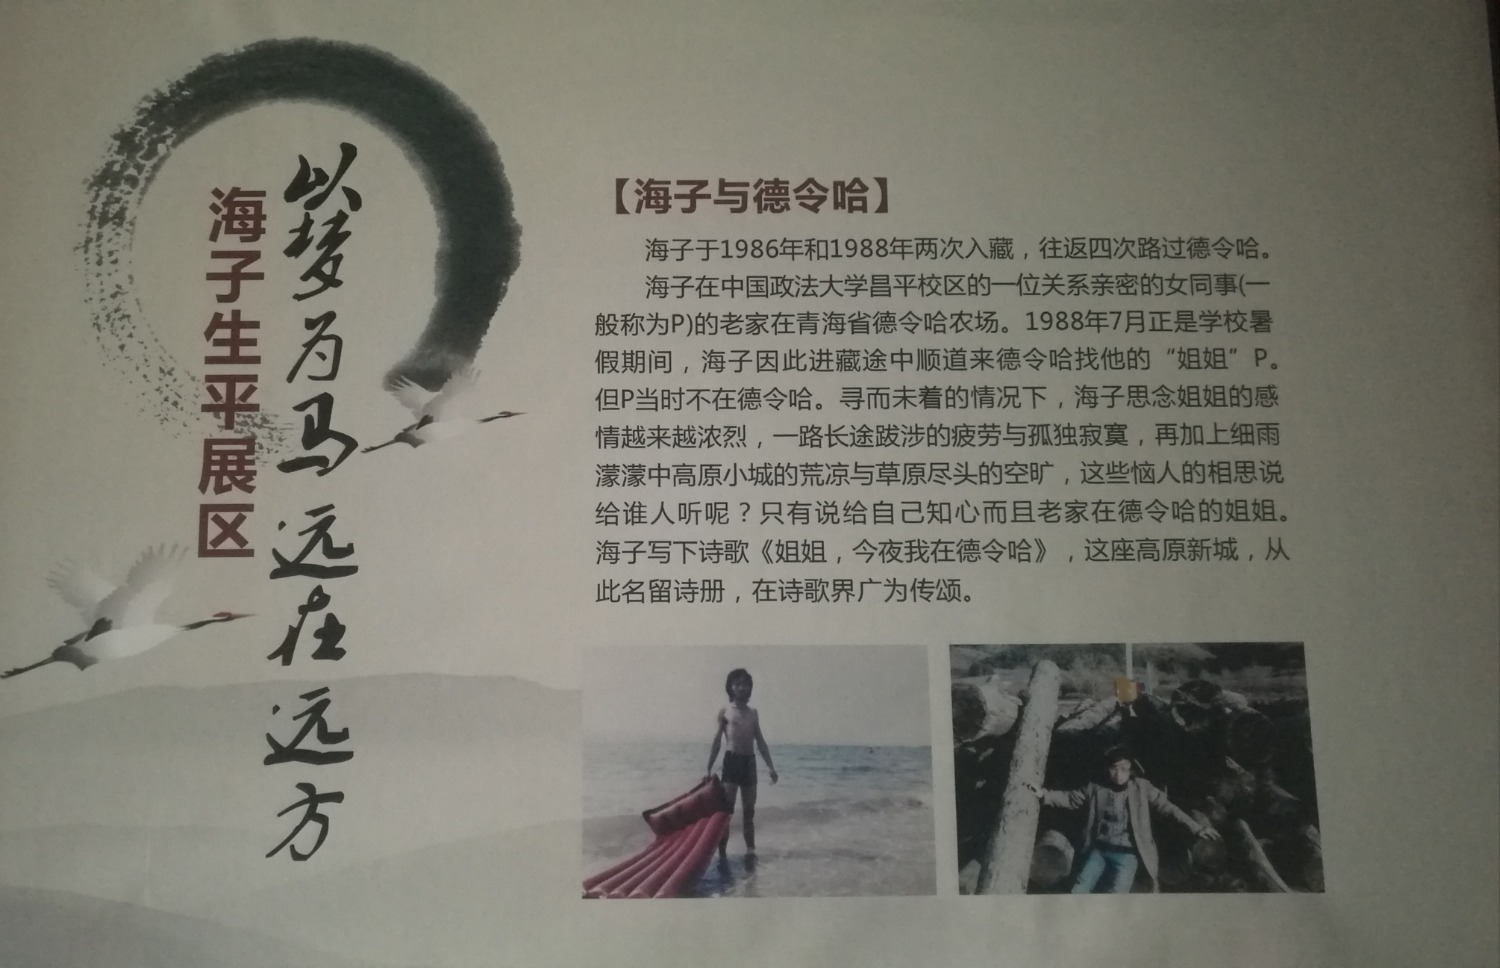 以梦为马 远在远方
海子生平展区
【海子与德令哈】
海子于1986年和1988年两次入藏，往返四次路过德令哈。
海子在中国政法大学昌平校区的一位关系亲密的女同事(一
般称为P)的老家在青海省德令哈农场。1988年7月正是学校暑
假期间，海子因此进藏途中顺道来德令哈找他的“姐姐”P。
但P当时不在德令哈。寻而未着的情况下，海子思念姐姐的感
情越来越浓烈，一路长途跋涉的疲劳与孤独寂寞，再加上细雨
濛濛中高原小城的荒凉与草原尽头的空旷，这些恼人的相思说
给谁人听呢？只有说给自己知心而且老家在德令哈的姐姐。
海子写下诗歌《姐姐，今夜我在德令哈》，这座高原新城，从
此名留诗册，在诗歌界广为传颂。